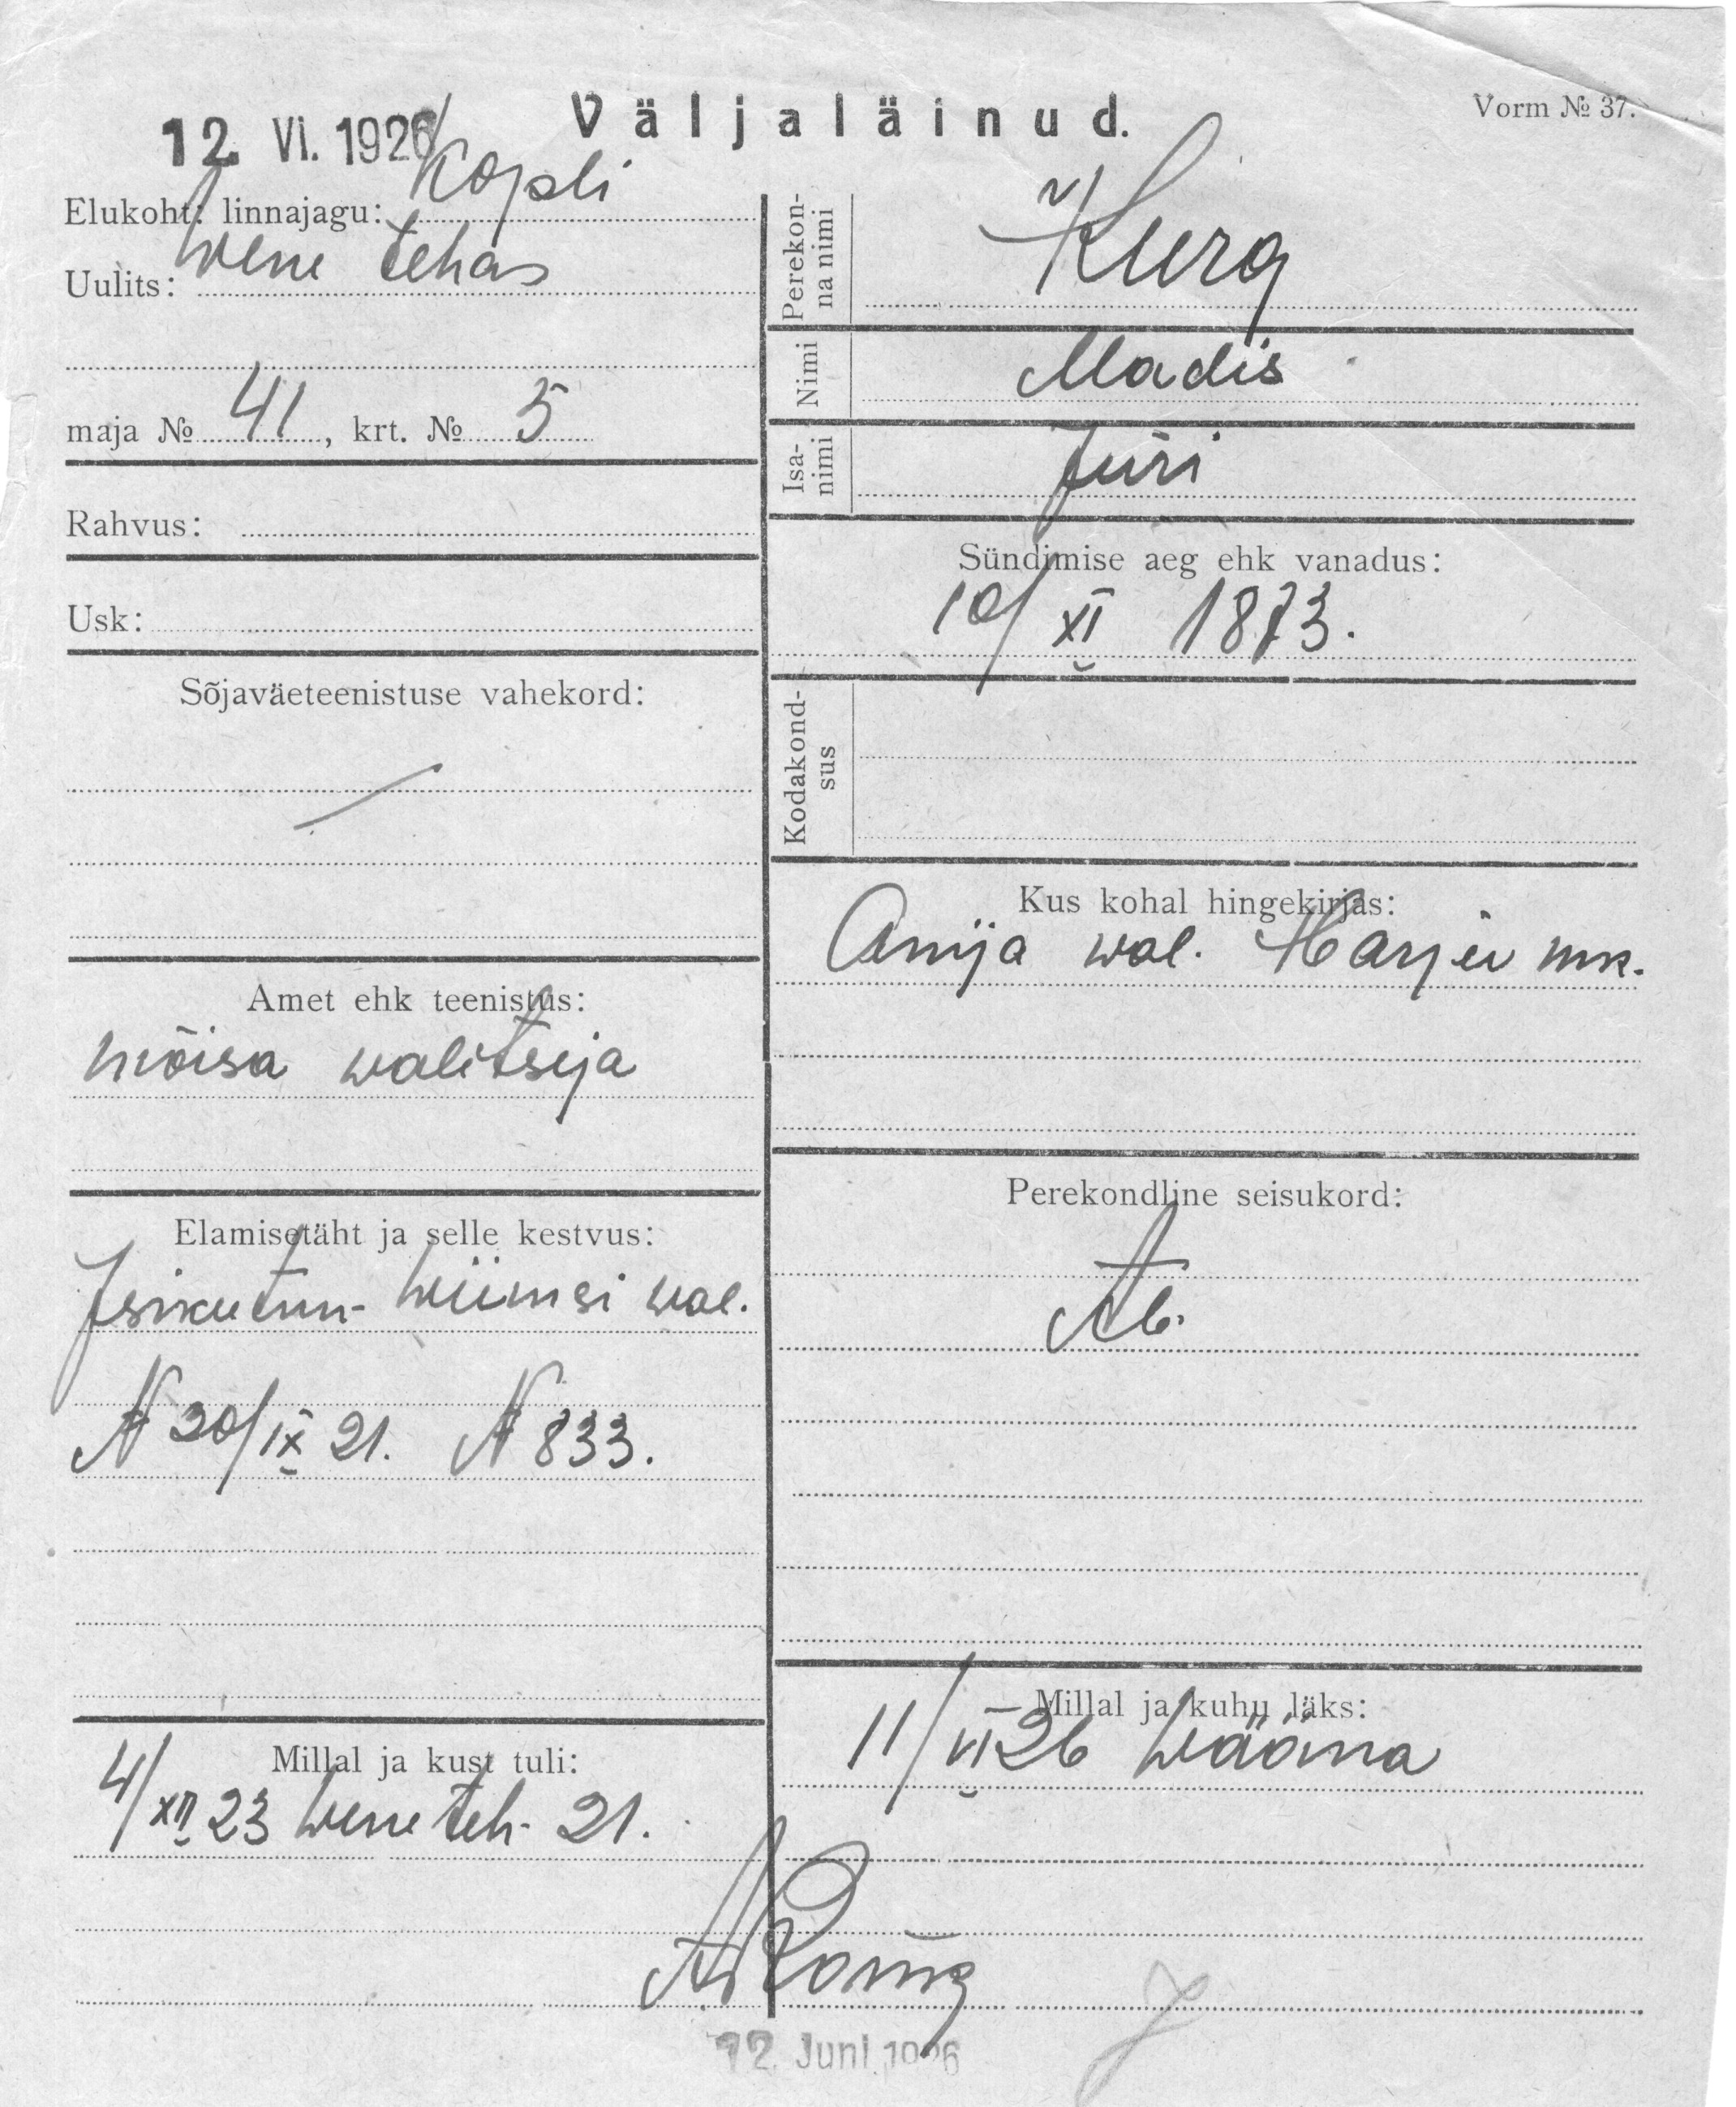 Väljaläinud.
Vorm № 37.
12. VI. 1926
Elukoht: linnajagu: Kopli
Uulits: Wene tehas
maja № 41, krt. № 5
Rahvus:
Usk:
Sõjaväeteenistuse vahekord:
Amet ehk teenistus:
mõisa walitseja
Elamisetäht ja selle kestvus:
Isikutun- Wiimsi wal.
N 20/IX 21. N 833.
Millal ja kust tuli:
4/XII 23 Wene teh- 21.
Perekon-
na nimi
Kurg
Nimi
Madis
Isa-
nimi
Jüri
Sündimise aeg ehk vanadus:
10/XI 1873.
Kodakond-
sus
Kus kohal hingekirjas:
Anija wal. Harju mk.
Perekondline seisukord:
Ab.
Millal ja kuhu läks:
11/VI 26 Wääna
12. Juni 1926